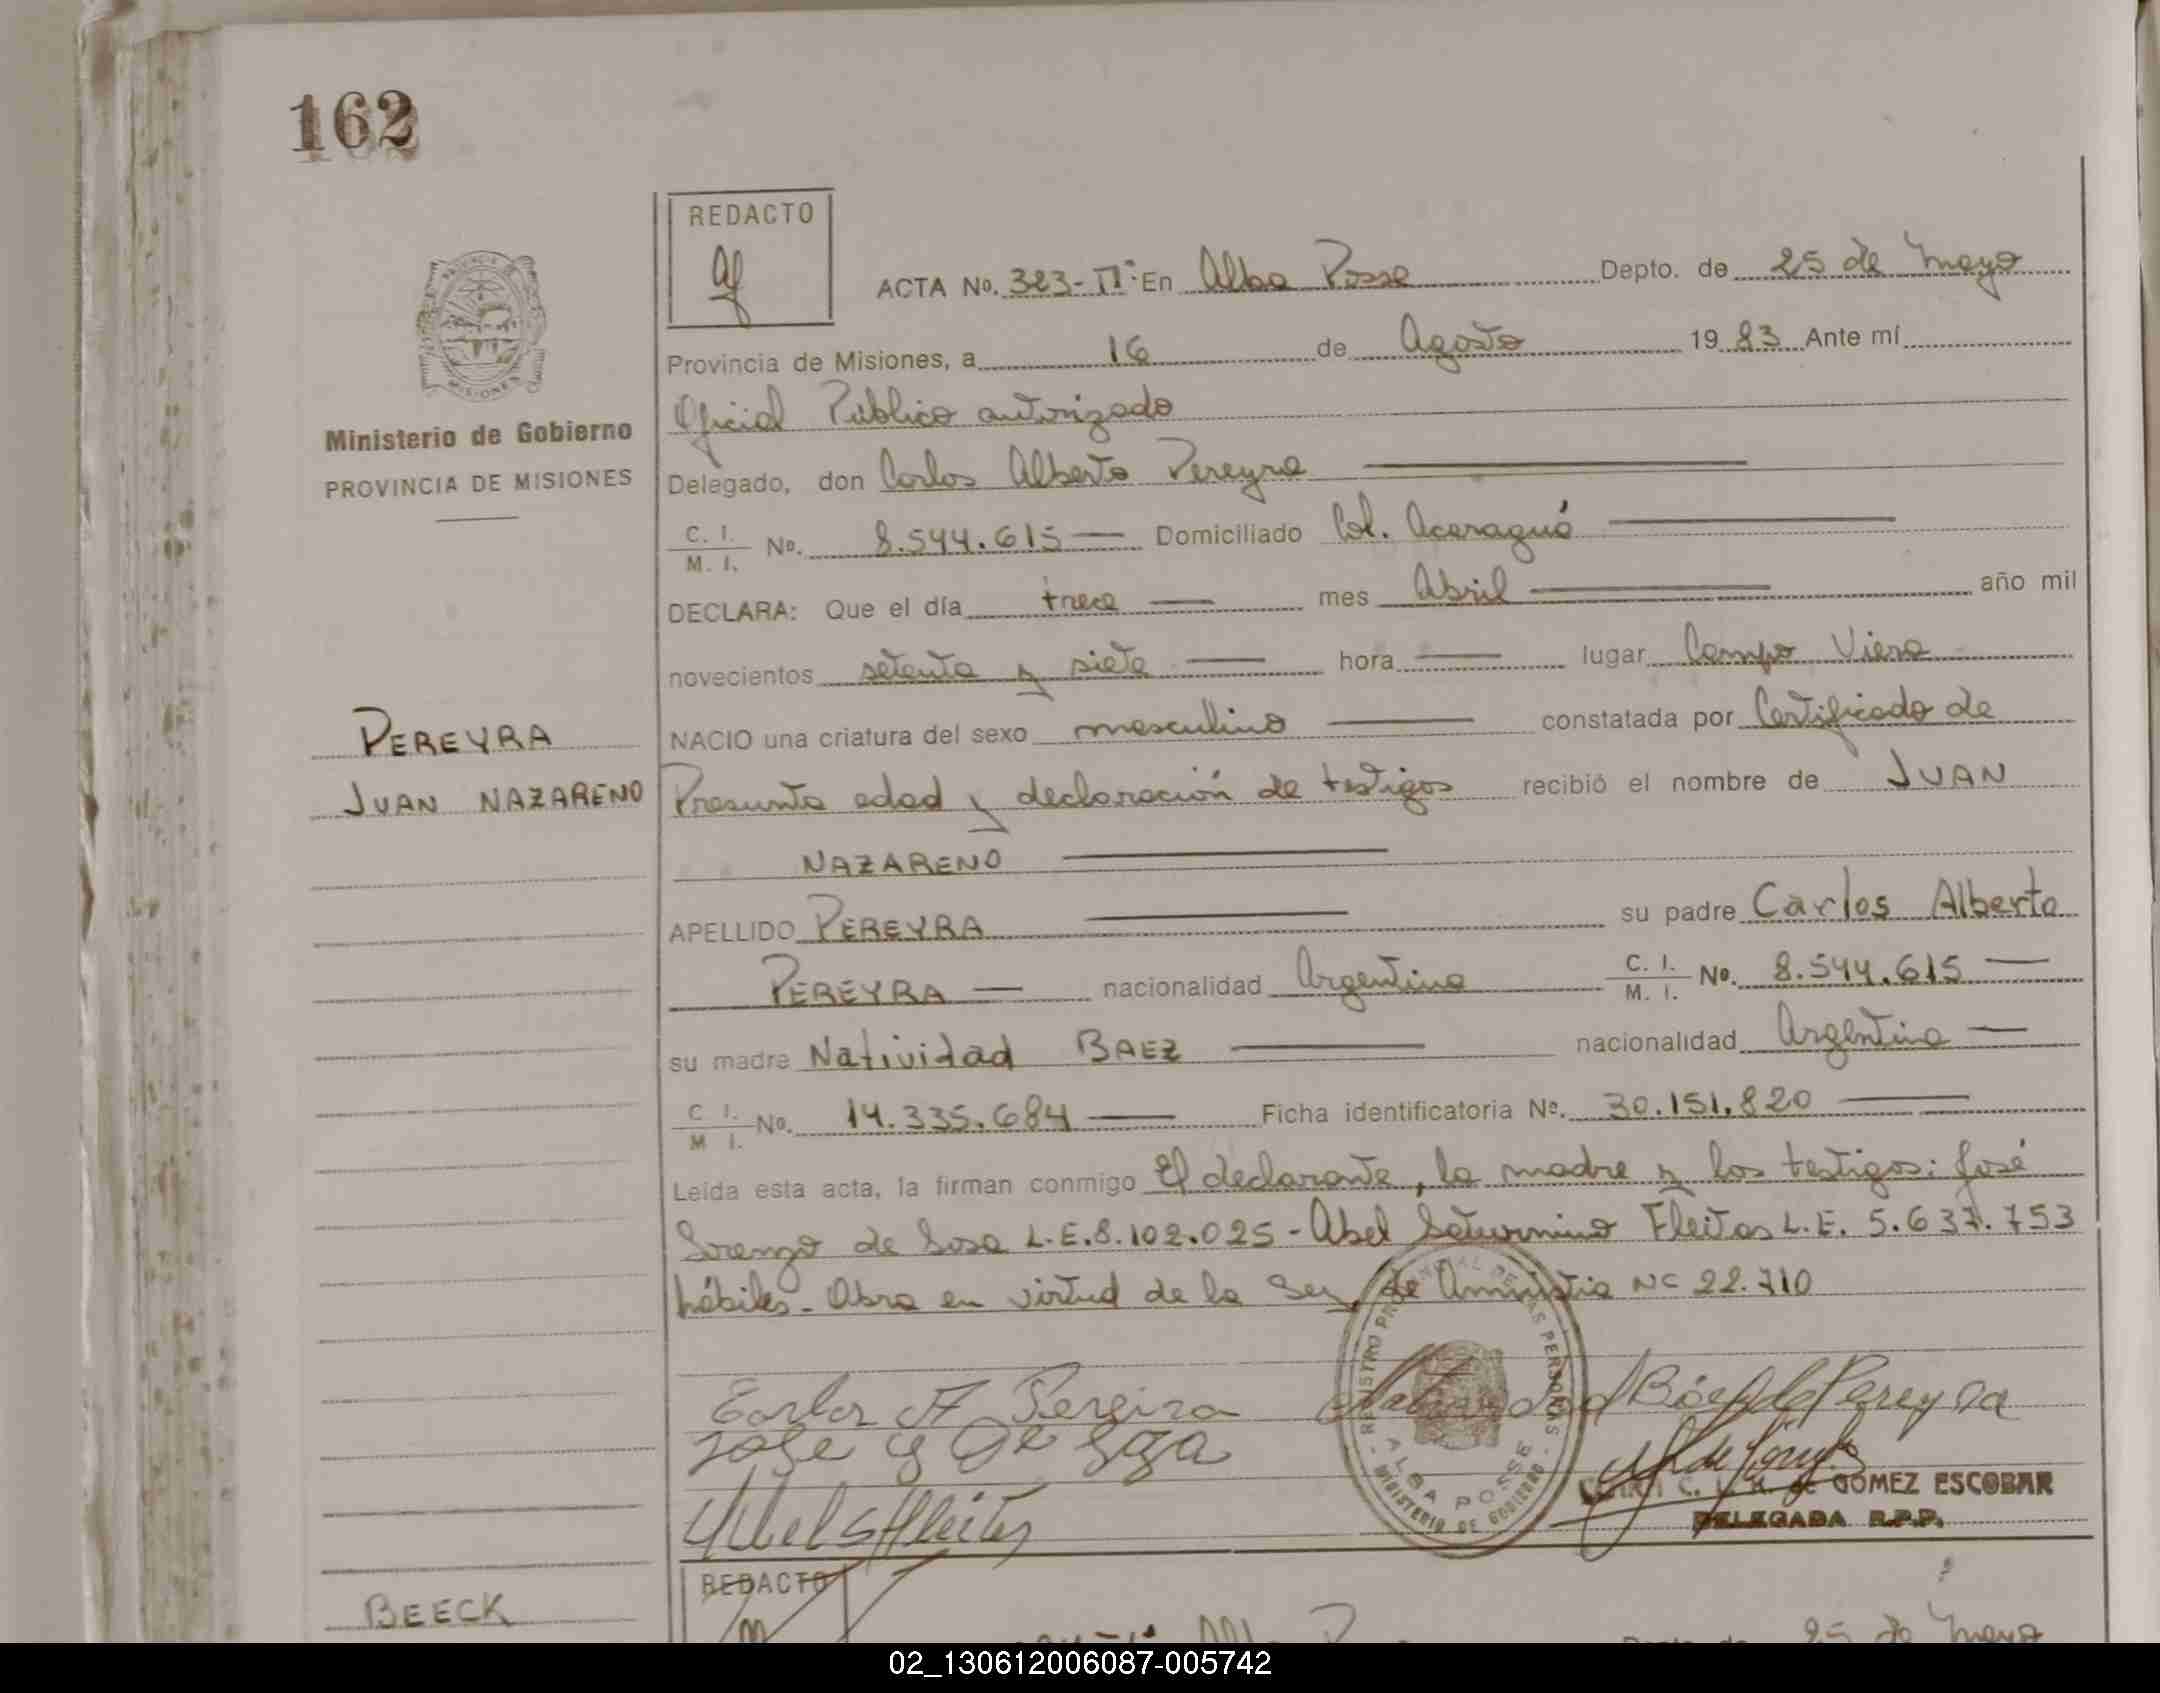 162
REDACTO
ACTA No. 323-Tº En Alba Posse Depto. de 25 de Mayo
Provincia de Misiones, a 16 de Agosto 1983 Ante mí
Oficial Público autorizado
Ministerio de Gobierno
PROVINCIA DE MISIONES
Delegado, don Carlos Alberto Pereyra
C. I. / M. I. No. 8.544.615 Domiciliado Col. Acaraguá
DECLARA: Que el día trece mes Abril año mil
novecientos setenta y siete hora lugar Campo Viera
PEREYRA
NACIO una criatura del sexo masculino constatada por Certificado de
JUAN NAZARENO
Presunta edad y declaración de testigos recibió el nombre de JUAN
NAZARENO
APELLIDO PEREYRA su padre Carlos Alberto
PEREYRA nacionalidad Argentina C. I. / M. I. No. 8.544.615
su madre Natividad BAEZ nacionalidad Argentina
C. I. / M. I. No. 14.335.684 Ficha identificatoria No. 30.151.820
Leída esta acta, la firman conmigo El declarante, la madre y los testigos: José
Lorenzo de Sosa L.E. 8.102.025 - Abel Saturnino Fleitas L.E. 5.637.753
hábiles - Abra en virtud de la Ley de Amnistia Nº 22.710
REGISTRO PROVINCIAL DE LAS PERSONAS
ALBA POSSE
MINISTERIO DE GOBIERNO
Carlos A Pereira Natividad Báez de Pereyra
Jose
Abel S Fleitas
GOMEZ ESCOBAR
DELEGADA R.P.P.
REDACTO
BEECK
25 de Mayo
02_130612006087-005742